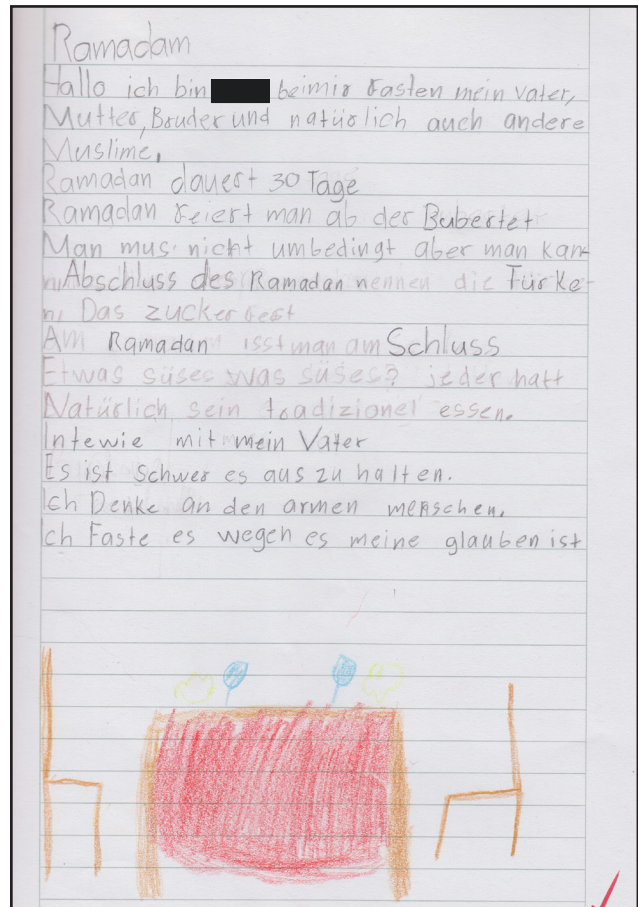 Ramadam
Hallo ich bin beimir fasten mein vater,
Mutter, Bruder und natürlich auch andere
Muslime.
Ramadan dauert 30 Tage
Ramadan feiert man ab der Bubertet
Man mus nicht umbedingt aber man kan-
n, Abschluss des Ramadan nennen die Türke-
n, Das zuckerfest
Am Ramadan isst man am Schluss
Etwas süses was süses? jeder hatt
Natürlich sein tradizionel essen.
Intewie mit mein Vater
Es ist schwer es aus zu halten.
Ich Denke an den armen menschen.
Ich Faste es wegen es meine glauben ist